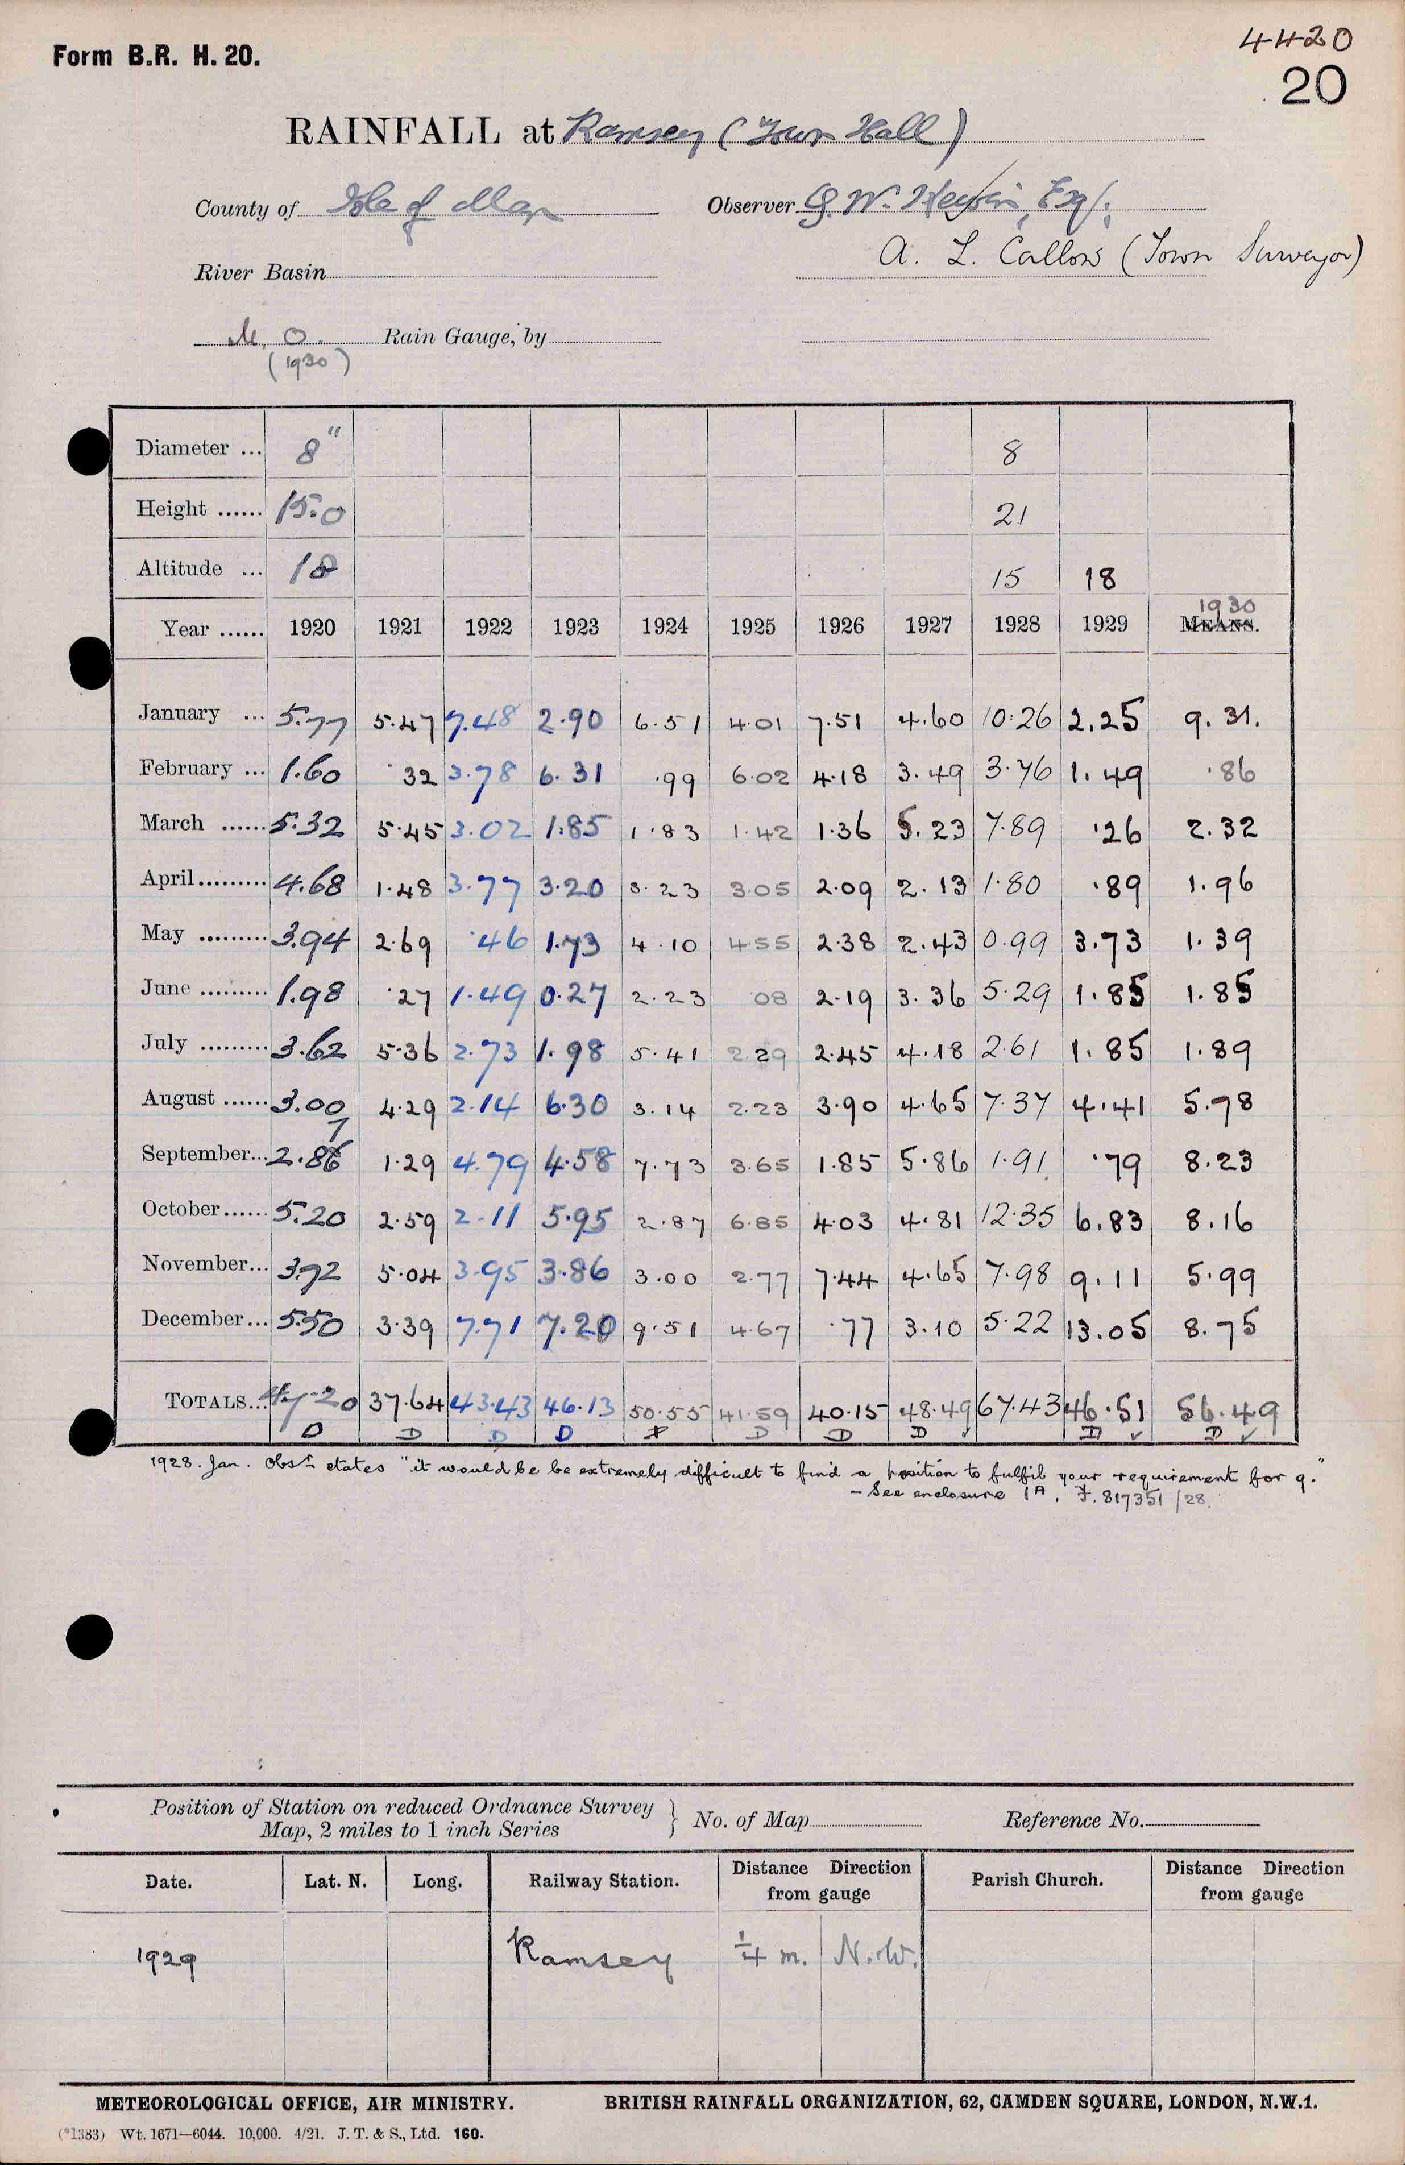 Form B.R. H. 20.
4420
20
RAINFALL at Ramsey (Town Hall)
County of Isle of Man Observer G. W. Esq.
A. L. Callow (Town Surveyor)
River Basin
M. O. Rain Gauge, by
(1930)
Diameter ... 8" 8
Height ...... 15.0 21
Altitude ... 18 15 18
1930
Year ...... 1920 1921 1922 1923 1924 1925 1926 1927 1928 1929 MEANS.
January ... 5.77 5.47 7.48 2.90 6.51 4.01 7.51 4.60 10.26 2.25 9.31.
February ... 1.60 .32 3.78 6.31 .99 6.02 4.18 3.49 3.76 1.49 .86
March ...... 5.32 5.45 3.02 1.85 1.83 1.42 1.36 5.23 7.89 .26 2.32
April ......... 4.68 1.48 3.77 3.20 3.23 3.05 2.09 2.13 1.80 .89 1.96
May ......... 3.94 2.69 .46 1.73 4.10 4.55 2.38 2.43 0.99 3.73 1.39
June ......... 1.98 .27 1.49 0.27 2.23 08 2.19 3.36 5.29 1.85 1.85
July ......... 3.62 5.36 2.73 1.98 5.41 2.29 2.45 4.18 2.61 1.85 1.89
August ...... 3.00 4.29 2.14 6.30 3.14 2.23 3.90 4.65 7.37 4.41 5.78
7
September... 2.86 1.29 4.79 4.58 7.73 3.65 1.85 5.86 1.91 .79 8.23
October...... 5.20 2.59 2.11 5.95 2.87 6.85 4.03 4.81 12.35 6.83 8.16
November... 3.72 5.04 3.95 3.86 3.00 2.77 7.44 4.65 7.98 9.11 5.99
December... 5.50 3.39 7.71 7.20 9.51 4.67 .77 3.10 5.22 13.05 8.75
TOTALS... 47.20 37.64 43.43 46.13 50.55 41.59 40.15 48.49 67.43 46.51 56.49
D D D D D D D D D D
1928. Jan. Obsr. states "it would be be extremely difficult to find a position to fulfil your requirement for g."
- See enclosure 1A. F. 817351/28.
Position of Station on reduced Ordnance Survey
Map, 2 miles to 1 inch Series } No. of Map Reference No.
Date. Lat. N. Long. Railway Station. Distance Direction from gauge Parish Church. Distance Direction from gauge
1929 Ramsey ¼ m. N.W.
METEOROLOGICAL OFFICE, AIR MINISTRY. BRITISH RAINFALL ORGANIZATION, 62, CAMDEN SQUARE, LONDON, N.W.1.
(*1383) Wt. 1671—6044. 10,000. 4/21. J. T. & S., Ltd. 160.